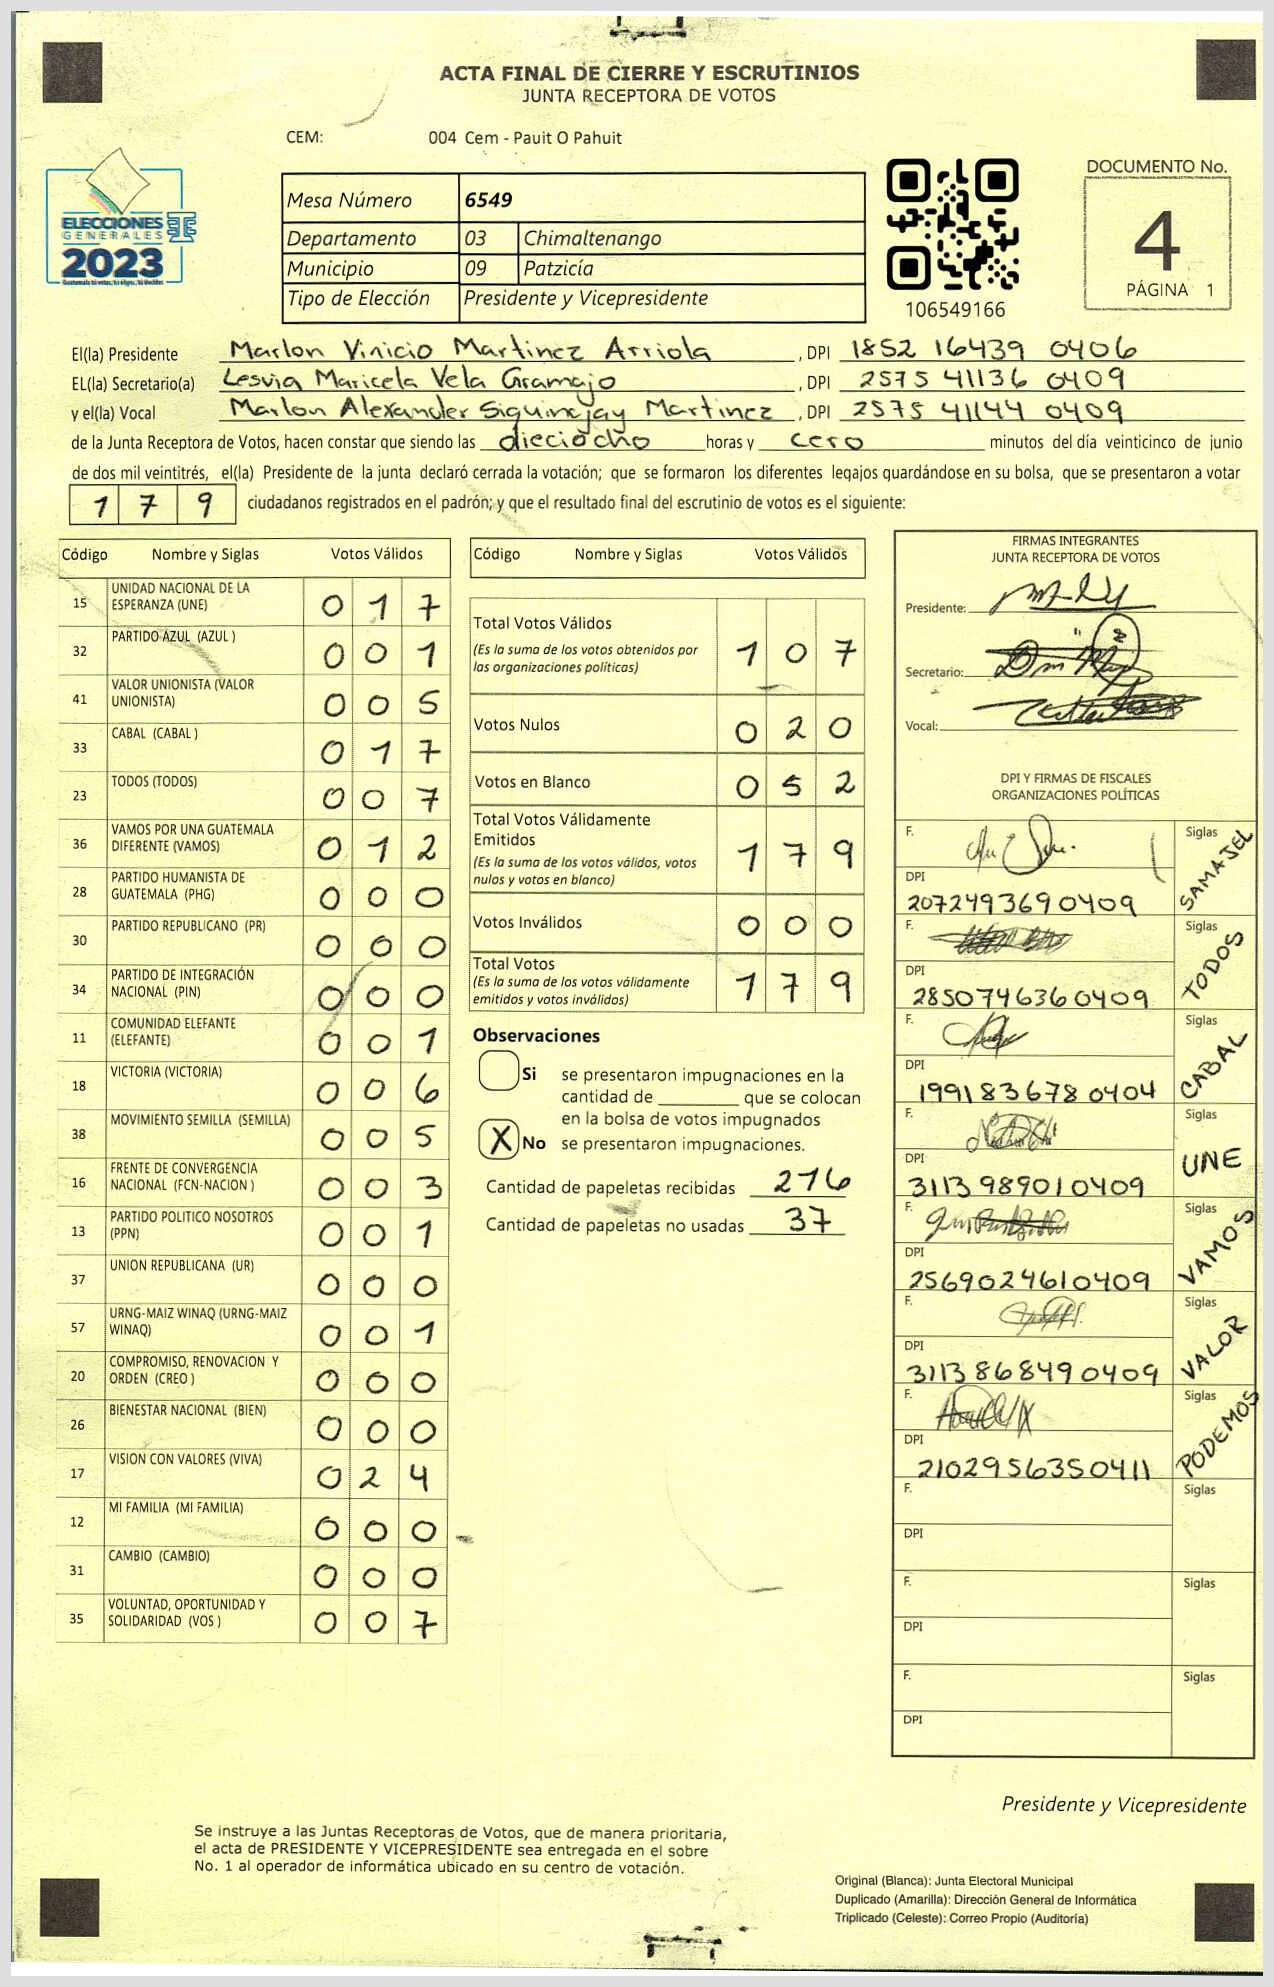 ACTA FINAL DE CIERRE Y ESCRUTINIOS
JUNTA RECEPTORA DE VOTOS
CEM: 004 Cem - Pauit O Pahuit
ELECCIONES
GENERALES
2023
Mesa Número 6549
Departamento 03 Chimaltenango
Municipio 09 Patzicía
Tipo de Elección Presidente y Vicepresidente
106549166
DOCUMENTO No.
4
PÁGINA 1
El(la) Presidente Marlon Vinicio Martinez Arriola , DPI 1852 16439 0406
EL(la) Secretario(a) Lesvia Maricela Vela Gramajo , DPI 2575 41136 0409
y el(la) Vocal Marlon Alexander Siquinajay Martinez , DPI 2575 41144 0409
de la Junta Receptora de Votos, hacen constar que siendo las dieciocho horas y cero minutos del día veinticinco de junio
de dos mil veintitrés, el(la) Presidente de la junta declaró cerrada la votación; que se formaron los diferentes legajos guardándose en su bolsa, que se presentaron a votar
1 7 9 ciudadanos registrados en el padrón; y que el resultado final del escrutinio de votos es el siguiente:
Código Nombre y Siglas Votos Válidos
15 UNIDAD NACIONAL DE LA ESPERANZA (UNE) 0 1 7
32 PARTIDO AZUL (AZUL ) 0 0 1
41 VALOR UNIONISTA (VALOR UNIONISTA) 0 0 5
33 CABAL (CABAL ) 0 1 7
23 TODOS (TODOS) 0 0 7
36 VAMOS POR UNA GUATEMALA DIFERENTE (VAMOS) 0 1 2
28 PARTIDO HUMANISTA DE GUATEMALA (PHG) 0 0 0
30 PARTIDO REPUBLICANO (PR) 0 0 0
34 PARTIDO DE INTEGRACIÓN NACIONAL (PIN) 0 0 0
11 COMUNIDAD ELEFANTE (ELEFANTE) 0 0 1
18 VICTORIA (VICTORIA) 0 0 6
38 MOVIMIENTO SEMILLA (SEMILLA) 0 0 5
16 FRENTE DE CONVERGENCIA NACIONAL (FCN-NACION ) 0 0 3
13 PARTIDO POLITICO NOSOTROS (PPN) 0 0 1
37 UNION REPUBLICANA (UR) 0 0 0
57 URNG-MAIZ WINAQ (URNG-MAIZ WINAQ) 0 0 1
20 COMPROMISO, RENOVACION Y ORDEN (CREO ) 0 0 0
26 BIENESTAR NACIONAL (BIEN) 0 0 0
17 VISION CON VALORES (VIVA) 0 2 4
12 MI FAMILIA (MI FAMILIA) 0 0 0
31 CAMBIO (CAMBIO) 0 0 0
35 VOLUNTAD, OPORTUNIDAD Y SOLIDARIDAD (VOS ) 0 0 7
Código Nombre y Siglas Votos Válidos
Total Votos Válidos 1 0 7
(Es la suma de los votos obtenidos por
las organizaciones políticas)
Votos Nulos 0 2 0
Votos en Blanco 0 5 2
Total Votos Válidamente
Emitidos 1 7 9
(Es la suma de los votos válidos, votos
nulos y votos en blanco)
Votos Inválidos 0 0 0
Total Votos 1 7 9
(Es la suma de los votos válidamente
emitidos y votos inválidos)
Observaciones
Si se presentaron impugnaciones en la
cantidad de ________ que se colocan
en la bolsa de votos impugnados
X No se presentaron impugnaciones.
Cantidad de papeletas recibidas 216
Cantidad de papeletas no usadas 37
FIRMAS INTEGRANTES
JUNTA RECEPTORA DE VOTOS
Presidente:
Secretario:
Vocal:
DPI Y FIRMAS DE FISCALES
ORGANIZACIONES POLÍTICAS
F. Siglas SAMAJEL
DPI
2072493690409
F. Siglas TODOS
DPI
2850746360409
F. Siglas CABAL
DPI
1991836780404
F. Siglas UNE
DPI
3113989010409
F. Siglas VAMOS
DPI
2569024610409
F. Siglas VALOR
DPI
3113868490409
F. Siglas PODEMOS
DPI
2102956350411
F. Siglas
DPI
F. Siglas
DPI
F. Siglas
DPI
Presidente y Vicepresidente
Se instruye a las Juntas Receptoras de Votos, que de manera prioritaria,
el acta de PRESIDENTE Y VICEPRESIDENTE sea entregada en el sobre
No. 1 al operador de informática ubicado en su centro de votación.
Original (Blanca): Junta Electoral Municipal
Duplicado (Amarilla): Dirección General de Informática
Triplicado (Celeste): Correo Propio (Auditoría)